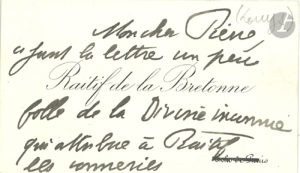 Mon cher René
ajout la lettre un peu
Raitif de la Bretonne
folle de la Divine inconnue
qui attribue à Raitif
les